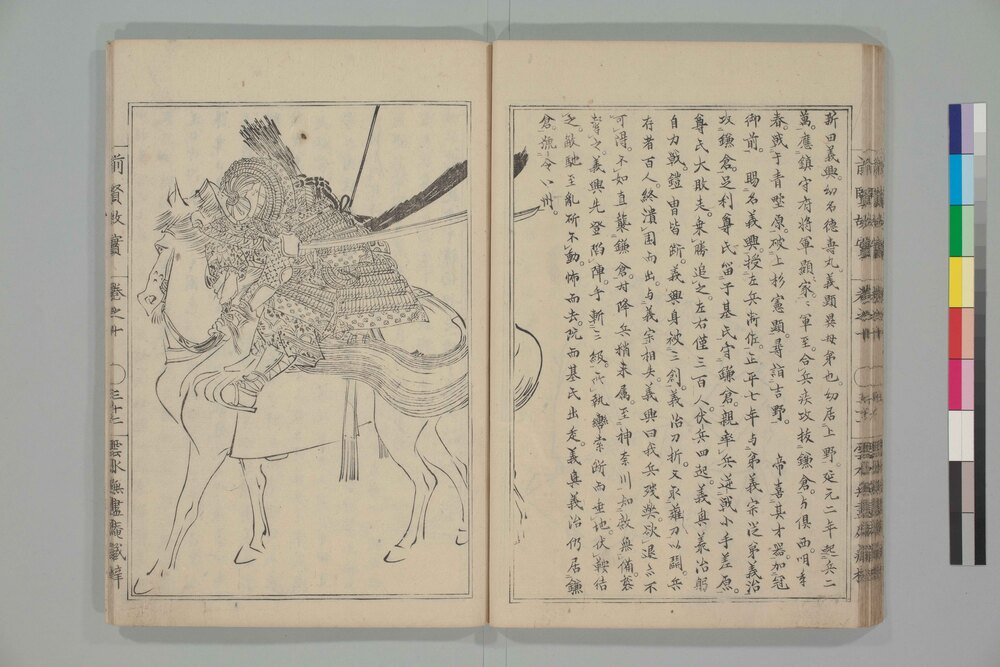 新田義興。幼名德壽丸。義顯異母弟也。幼居上野。延元二年起兵二
萬。應鎮守府將軍顯家。軍至。合兵疾攻拔鎌倉。与俱西。明年
春。戰于青墅原。破上杉憲顯。尋詣吉野。 帝喜其才器。加冠
御前。 賜名義興。授左兵衛佐。正平七年与弟義宗從弟義治
攻鎌倉。足利尊氏留子基氏守鎌倉。親率兵逆戰小手差原。
尊氏大敗走。乗勝追之。左右僅三百人。伏兵四起。義興義治躬
自力戰。鎧冑皆斷。義興身被三創。義治刀折。又取薙刀以鬪。兵
存者百人。終潰圍而出。与義宗相失。義興曰我兵殘樂。欲退亦不
可得。不如直襲鎌倉。時降兵稍来属。至神奈川知敵無備。襲
撃之。義興先登陷陣。手斬三級。敵斷而垂地。伏鞍結
之。敵馳至亂斫不動。怖而去。既而基氏出走。義興義治仍居鎌
倉。號令八州。
前賢故實 卷之十 〇三十二 雲水無盡庵藏梓